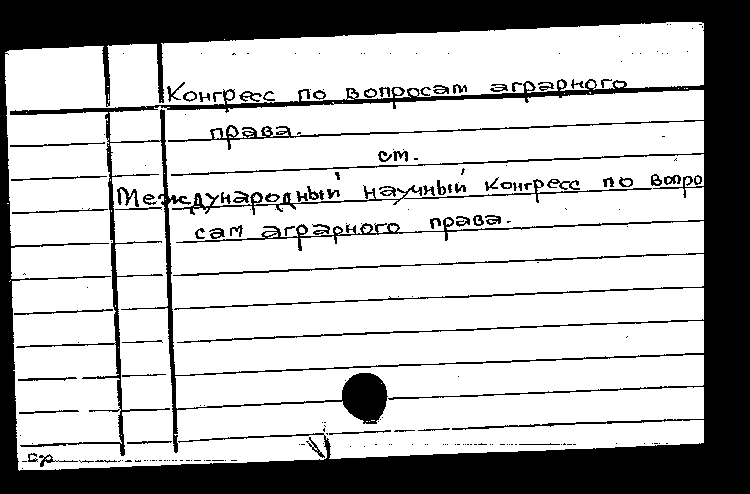 Конгресс по вопросам аграрного
права.
см.
Международный научный конгресс по вопро
сам аграрного права.